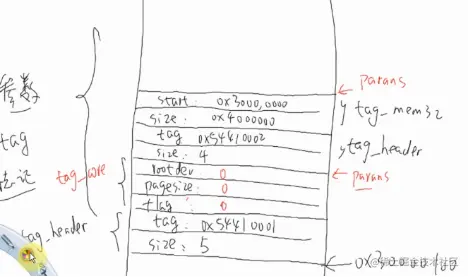 params
start: 0x3000,0000
size: 0x4000000
tag_mem32
参数
tag 0x54410002
tag
size: 4
tag_header
rootdev 0
params
标记
tag_core
pagesize: 0
flag: 0
tag: 0x54410001
tag_header
size: 5
0x30000100